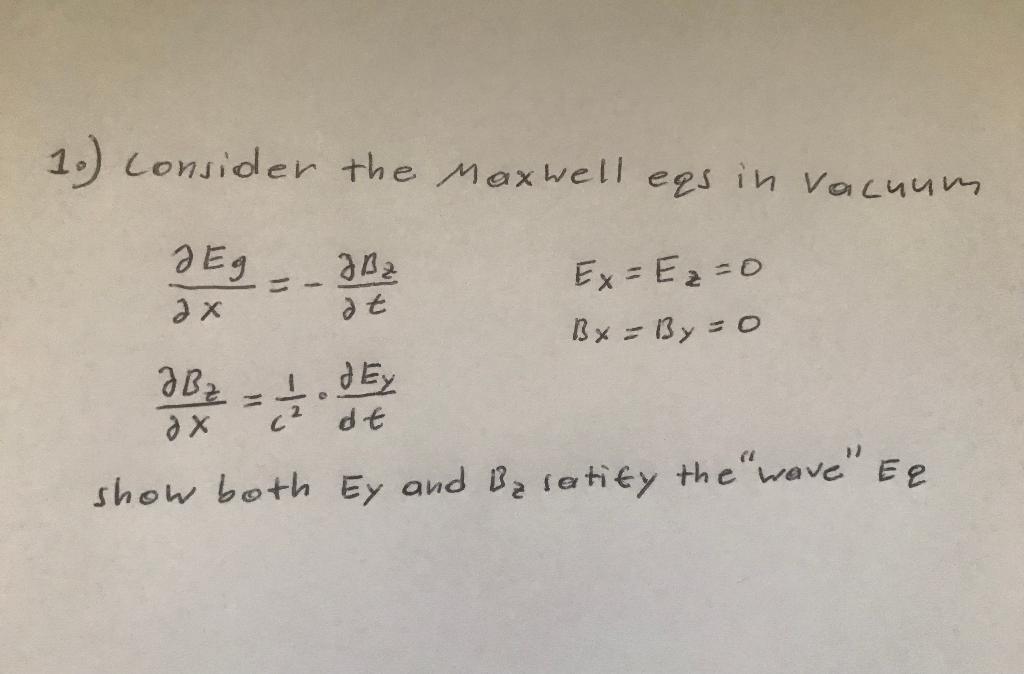 1.) Consider the Maxwell eqs in vacuum
∂Eg/∂x = - ∂Bz/∂t    Ex = Ez = 0
Bx = By = 0
∂Bz/∂x = 1/c² · ∂Ey/dt
show both Ey and Bz satify the "wave" Eq